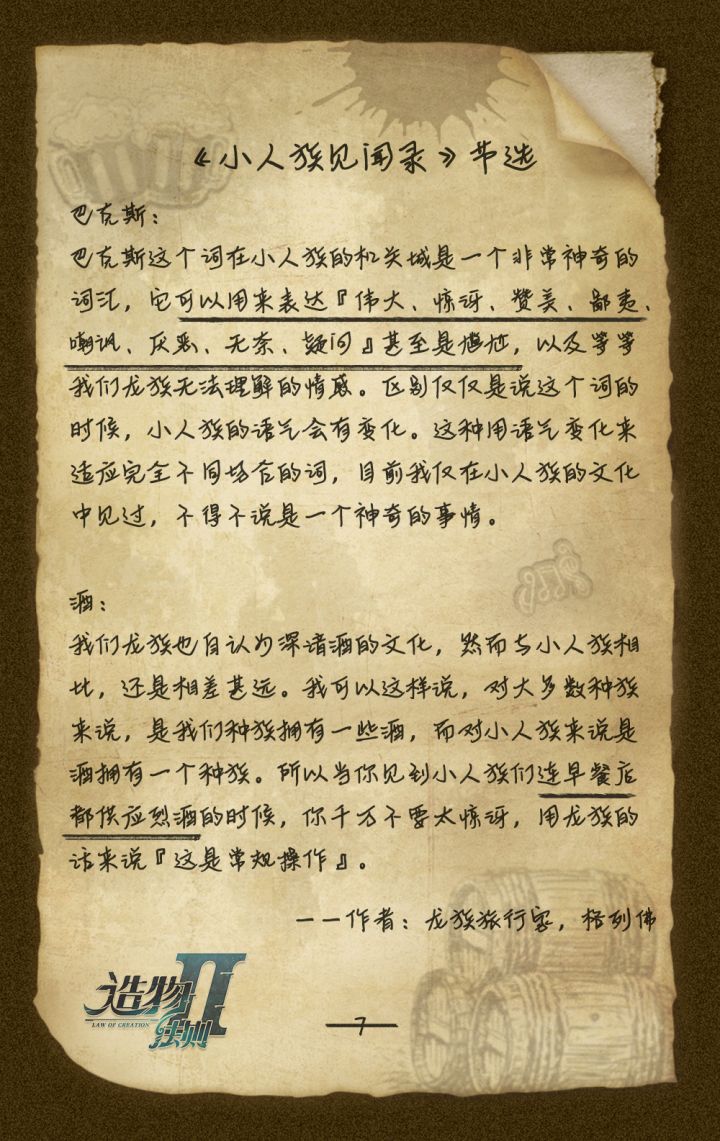 《小人族见闻录》节选
巴克斯：
巴克斯这个词在小人族的机关城是一个非常神奇的
词汇，它可以用来表达『伟大、惊讶、赞美、鄙夷、
嘲讽、厌恶、无奈、疑问』甚至是尴尬，以及等等
我们龙族无法理解的情感。区别仅仅是说这个词的
时候，小人族的语气会有变化。这种用语气变化来
适应完全不同场合的词，目前我仅在小人族的文化
中见过，不得不说是一个神奇的事情。
酒：
我们龙族也自认为深谙酒的文化，然而与小人族相
比，还是相差甚远。我可以这样说，对大多数种族
来说，是我们种族拥有一些酒，而对小人族来说是
酒拥有一个种族。所以当你见到小人族们连早餐店
都供应烈酒的时候，你千万不要太惊讶，用龙族的
话来说『这是常规操作』。
——作者：龙族旅行家，格列佛
造物法则II
LAW OF CREATION
7